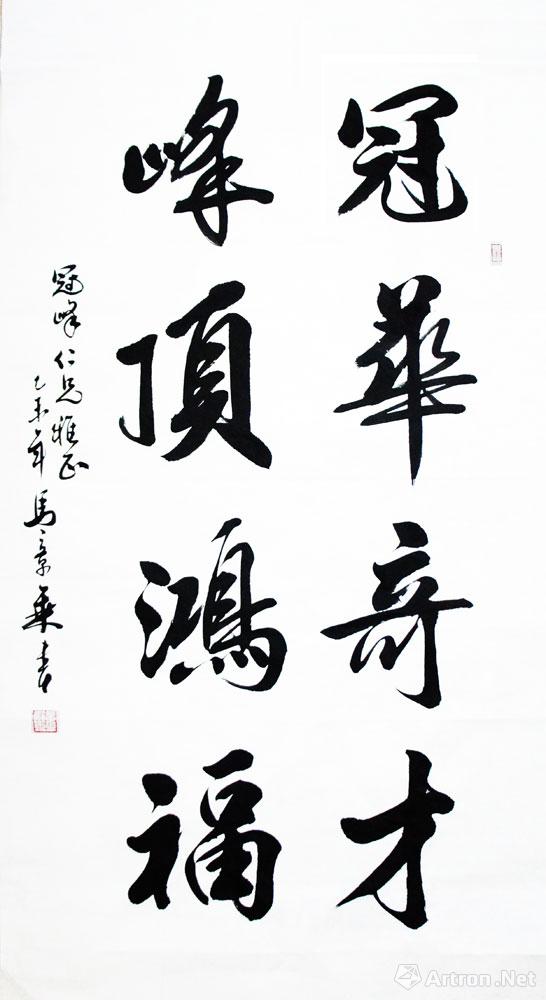 冠華奇才
峰頂鴻福
冠峰仁兄雅正
乙未年馬景乗書
Artron.Net